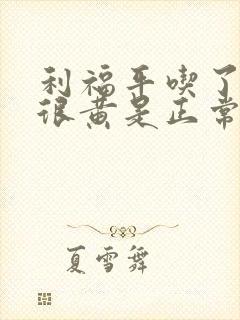 利福平喫了
很黄是正常
夏雪舞